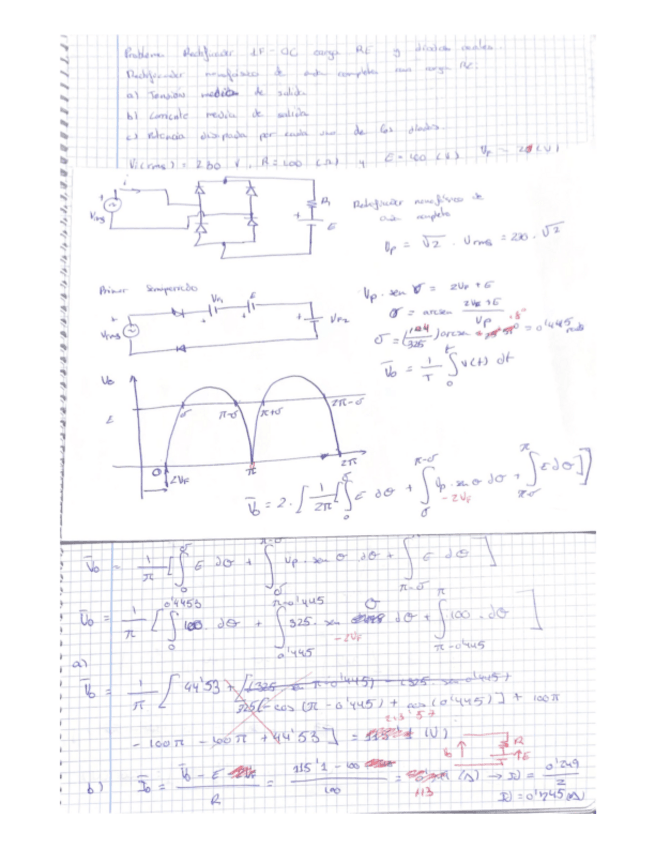 Problema Rectificador 1F-OC carga RE y diodos reales.
Rectificador monofásico de onda completa con carga RE.
a) Tensión media de salida
b) Corriente media de salida
c) Potencia disipada por cada uno de los diodos.
V(rms) = 230 V, R = 100 (Ω) y E = 100 (V)
Vrms
R
E
Rectificador monofásico de
onda completa
Vp = √2 · Vrms = 230 · √2
Primer Semiperiodo
Vrms
VF1
E
VF2
Vp · sen σ = 2VF + E
σ = arcsen (2VF + E)/Vp
= 0'445 rads
V̄o = 1/T ∫ v(t) dt
Vo
E
σ
π-σ
π+σ
2π-σ
0
2VF
π
2π
V̄o = 2 · [ 1/2π [ ∫ E dθ + ∫ Vp · sen θ dθ + ∫ E dθ ] ]
-2VF
V̄o = 1/π [ ∫ E dθ + ∫ Vp · sen θ dθ + ∫ E dθ ]
V̄o = 1/π [ ∫ 100 dθ + ∫ 325 · sen θ dθ + ∫ 100 · dθ ]
-2VF
a)
V̄o = 1/π [ 44'53 +
325(-cos (π-0'445) + cos (0'445)] + 100π
- 100π - 100π + 44'53 ] = (V)
b) Īo = (V̄o - E)/R = (115'1 - 100)/100 = (A) → ID = 0'249/2
1'13
ID = 0'1245 (A)